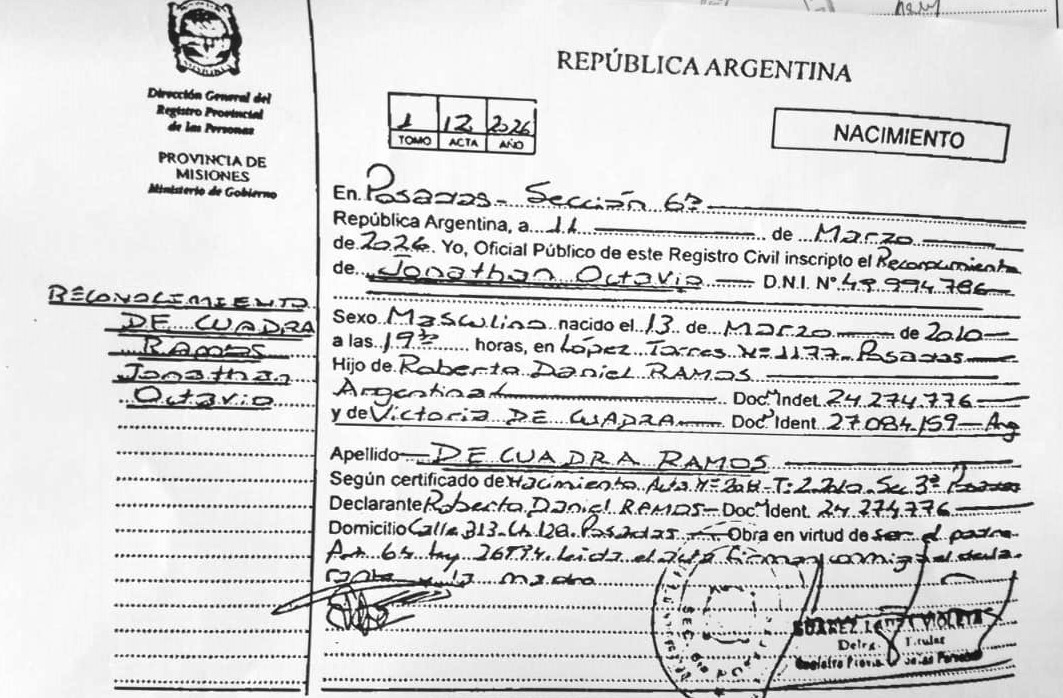 Dirección General del
Registro Provincial
de las Personas
PROVINCIA DE
MISIONES
Ministerio de Gobierno
RECONOCIMIENTO
DE CUADRA
RAMOS
Jonathan
Octavio
REPÚBLICA ARGENTINA
1 12 2026
TOMO ACTA AÑO
NACIMIENTO
En Posadas - Sección 6ª
República Argentina, a 11 de Marzo
de 2026. Yo, Oficial Público de este Registro Civil inscripto el Reconocimiento
de Jonathan Octavio D.N.I. Nº 49.994.786
Sexo Masculino nacido el 13 de Marzo de 2010
a las 19 horas, en López Torres Nº 1177 - Posadas
Hijo de Roberto Daniel RAMOS
Argentina Doc. Indet. 24.274.776
y de Victoria DE CUADRA Doc. Ident. 27.084.159 - Arg
Apellido DE CUADRA RAMOS
Según certificado de Nacimiento Acta Nº T: 2 2010. Sec 3ª Posadas
Declarante Roberto Daniel RAMOS - Doc. Ident. 24.274.776
Domicilio Calle 313. Ch. 128. Posadas Obra en virtud de ser el padre
Art. 64. Ley 26994. Leida el acta firman conmigo el decla-
rante y la madre
SUAREZ VIOLETA
Titular